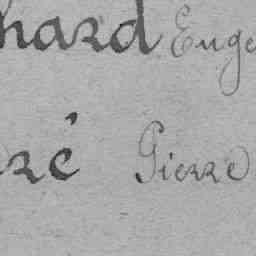 hard Euge
ré Pierre